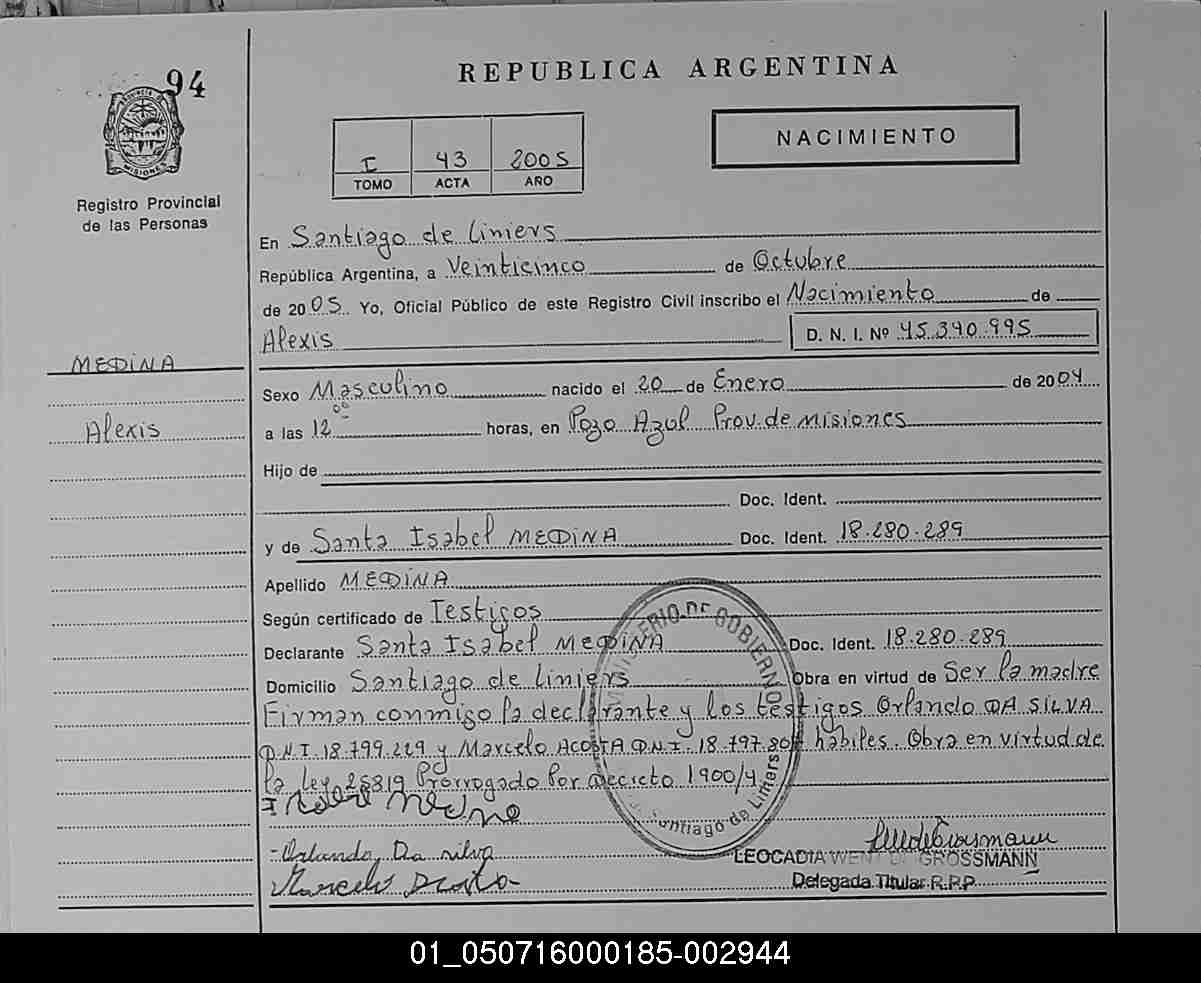 94
REPUBLICA ARGENTINA
PROVINCIA DE
MISIONES
Registro Provincial
de las Personas
I 43 2005
TOMO ACTA AÑO
NACIMIENTO
En Santiago de Liniers
República Argentina, a Veinticinco de Octubre
de 2005. Yo, Oficial Público de este Registro Civil inscribo el Nacimiento de
Alexis D. N. I. Nº 45.390.995
MEDINA
Alexis
Sexo Masculino nacido el 20 de Enero de 2004
a las 12 00 horas, en Pozo Azul Prov. de Misiones
Hijo de
Doc. Ident.
y de Santa Isabel MEDINA Doc. Ident. 18.280.289
Apellido MEDINA
Según certificado de Testigos
Declarante Santa Isabel MEDINA Doc. Ident. 18.280.289
Domicilio Santiago de Liniers Obra en virtud de Ser la madre
Firman conmigo la declarante y los testigos Orlando DA SILVA
D.N.I. 18.799.229 y Marcelo ACOSTA D.N.I. 18.797.807 hábiles. Obra en virtud de
la Ley 25819 Prorrogado Por Decreto 1900/4
MINISTERIO DE GOBIERNO
Santiago de Liniers
Orlando Da silva
LEOCADIA WENT DE GROSSMANN
Delegada Titular R.P.P
01_050716000185-002944